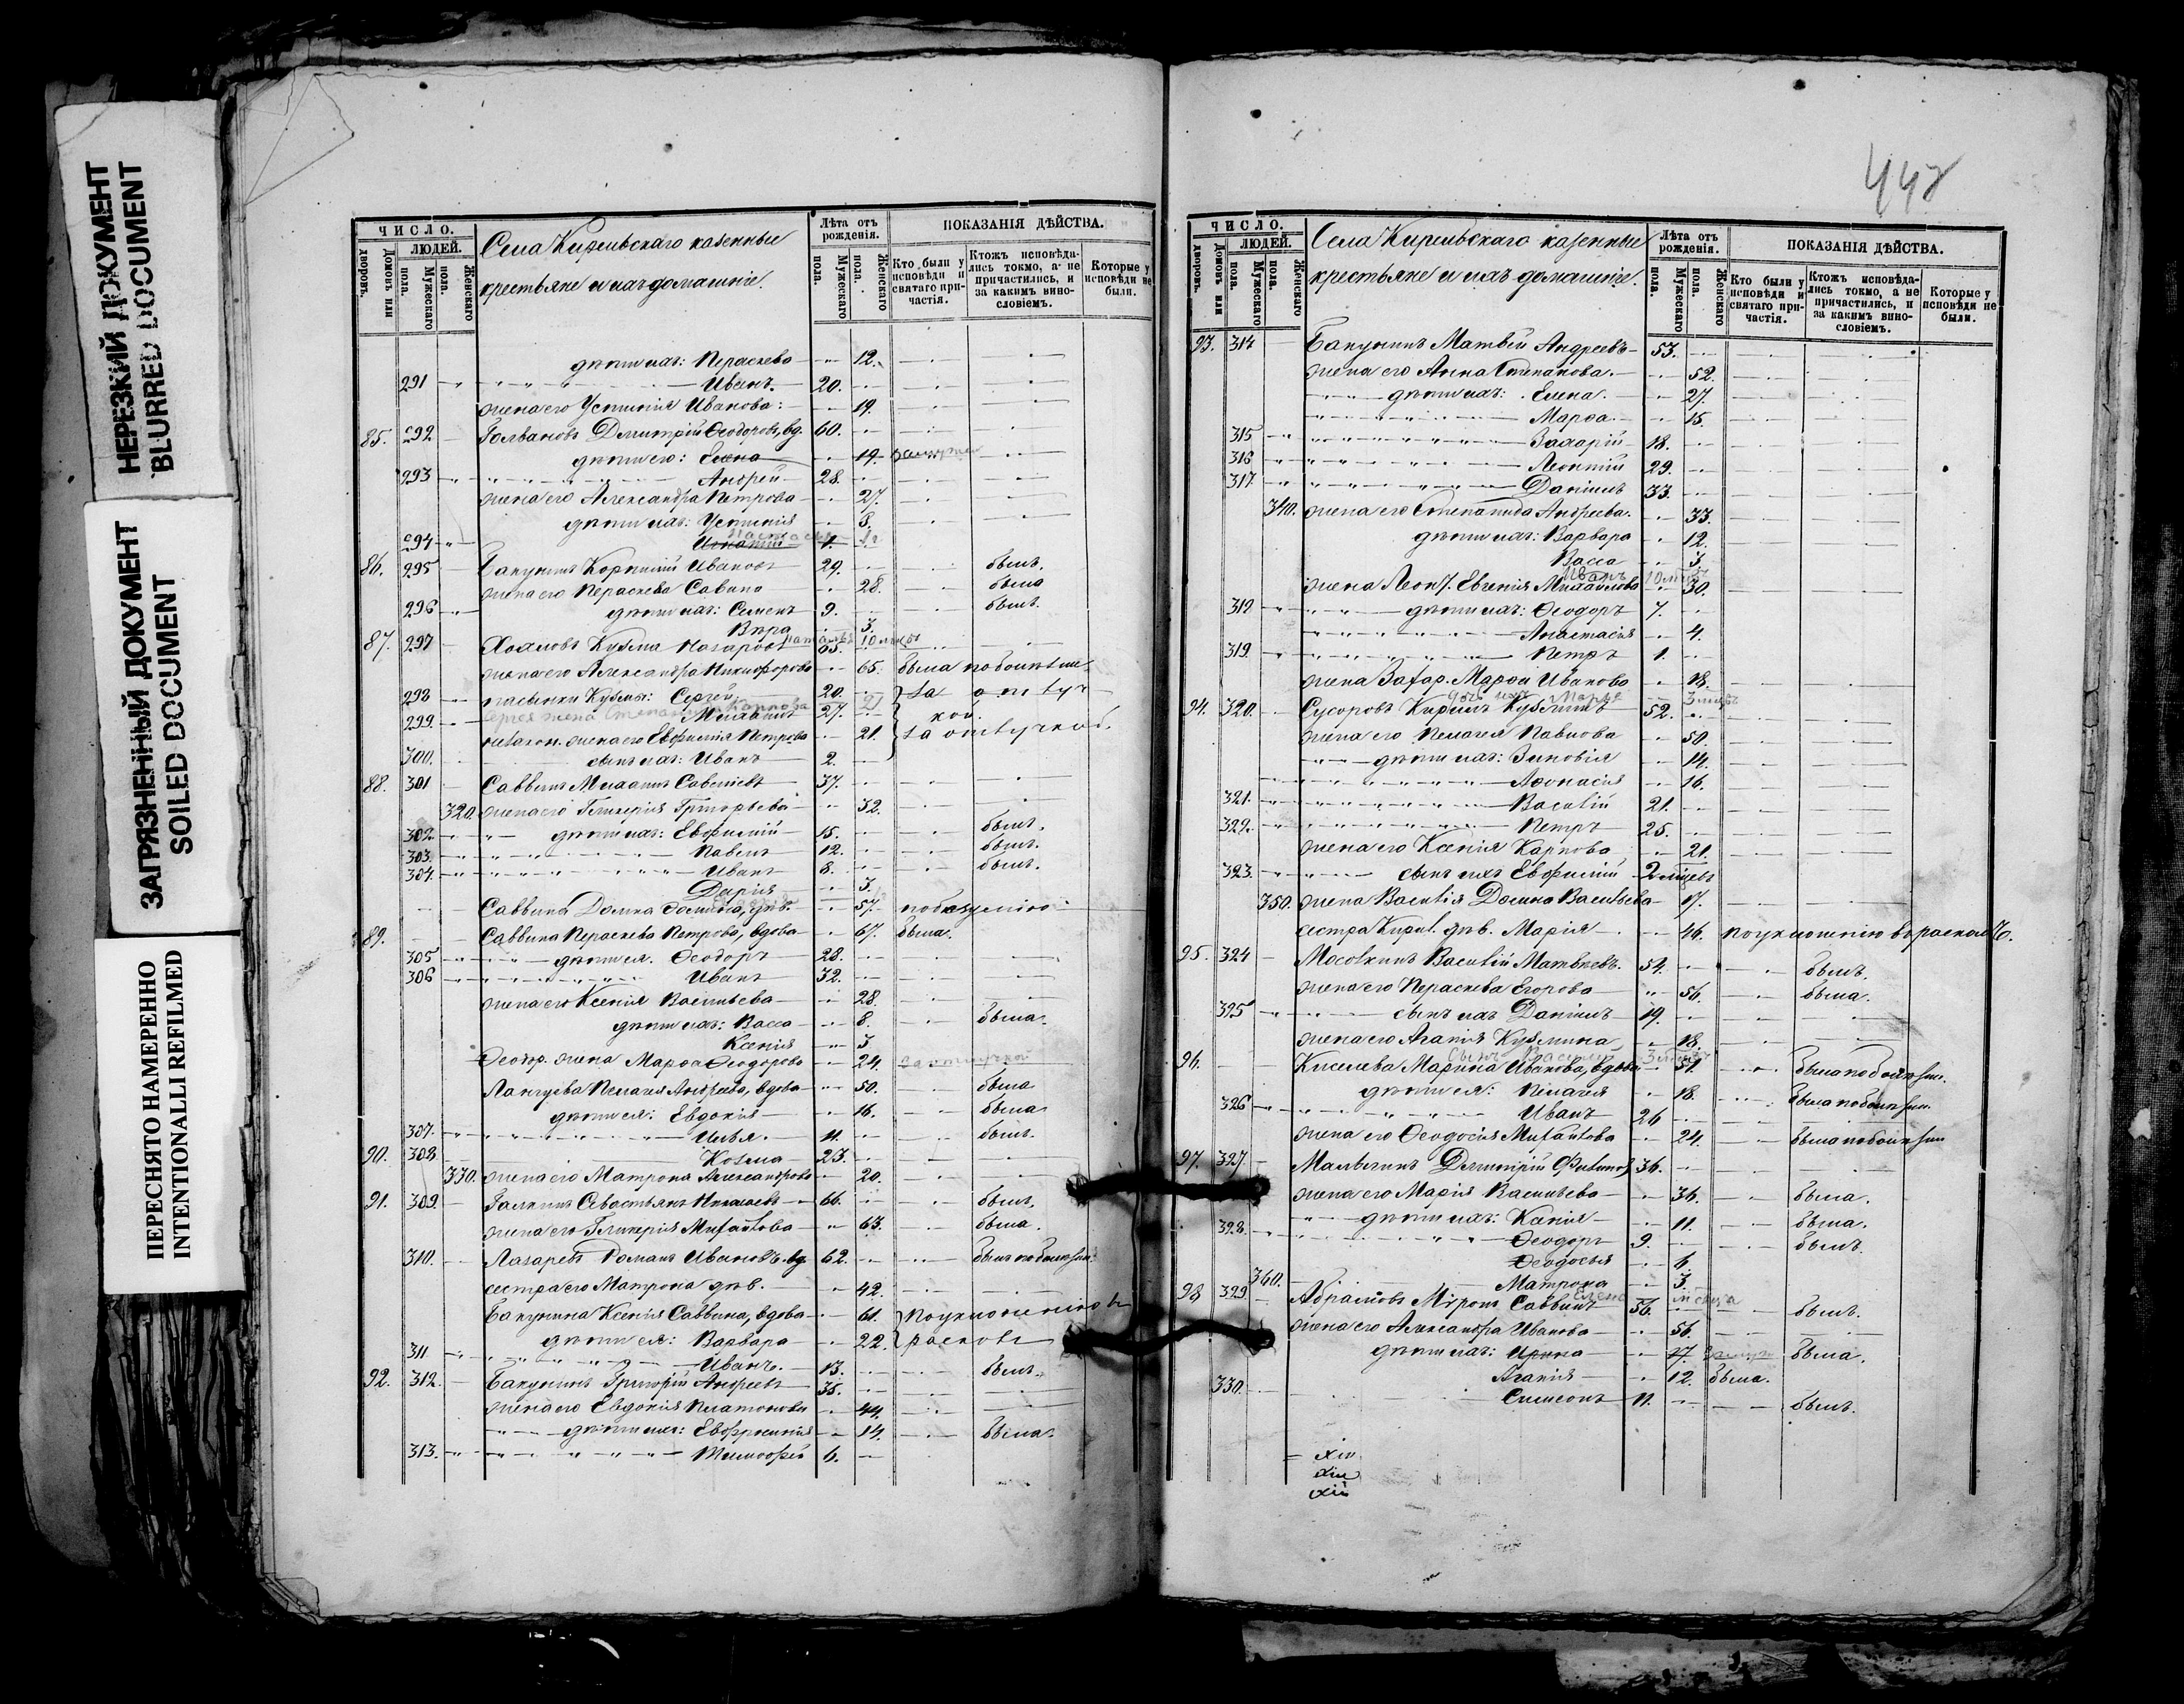 НЕРЕЗКИЙ ДОКУМЕНТ
BLURRED DOCUMENT
ЗАГРЯЗНЕННЫЙ ДОКУМЕНТ
SOILED DOCUMENT
ПЕРЕСНЯТО НАМЕРЕННО
INTENTIONALLI REFILMED
ЧИСЛО.
ЛЮДЕЙ.
Домовъ или дворовъ.
Мужескаго пола.
Женскаго пола.
казенные
крестьяне и ихъ домашніе.
Лѣта отъ рожденія.
Мужескаго пола.
Женскаго пола.
ПОКАЗАНІЯ ДѢЙСТВА.
Кто были у исповѣди и святаго причастія.
Ктожъ исповѣдались токмо, а не причастились, и за какимъ винословіемъ.
Которые у исповѣди не были.
дѣти ихъ: Параскева 12.
291 Иванъ. 20.
жена его Устинія Иванова: 19.
85. 292 Дмитрій Ѳеодоровъ, вд. 60.
дѣти его: Елена 19.
293 Андрей 28.
жена его Александра Петрова 27.
дѣти ихъ: Устинія 8.
294 Игнатій 1.
86. 295 Бакунинъ Иванов 29. былъ.
жена его Параскева Савина 28. была
296 дѣти ихъ: Семенъ 9. былъ.
Вѣра 3.
87. 297 Кузма Назаров 65.
жена его Александра Никифорова 65. была
298 пасынки Кузмы: Сергей 20. за отлуч
299 27. кой.
незакон. жена его Евфимія Петрова 21. за отлучкой.
300. сынъ ихъ: Иванъ 2.
88. 301 Саввинъ 37.
320. жена его Гликерія Григорьева 32.
302 дѣти ихъ: Евфимій 15. былъ.
303. Павелъ 12. былъ.
304. Иванъ 8. былъ.
Дарія 3.
Саввина Домна дѣв. 57.
89. Саввина Параскева Петрова, вдова 67. была.
305 дѣти ея. Ѳеодоръ 28.
306 Иванъ 32.
жена его Ксенія Васильева 28.
дѣти ихъ: Васса 8. была.
Ксенія 3
Ѳеодор. жена Марѳа Ѳеодорова 24. за отлучкой
Пелагея Андреева, вдова 50. была
дѣти ея: Евдокія 16. была
307. Илья. 11. былъ.
90. 308 Козма 23.
330. жена его Матрона Александрова 20.
91. 309. Галкинъ Севостьянъ 66. былъ.
жена его Гликерія Михайлова 63. была.
310. Лазаревъ Романъ Ивановъ. вд. 62. былъ
сестра его Матрона дѣв. 42.
Бакунина Ксенія Саввина, вдова 61. По уклоненію въ
дѣти ея: Варвара 22. расколъ
311 Иванъ. 13. былъ.
92. 312. Бакунинъ Григорій Андреевъ 35.
жена его Евдокія Платонова 44.
дѣти ихъ: Евфросинія 14. была.
313. Тимоѳей 6.
ЧИСЛО.
ЛЮДЕЙ.
Домовъ или дворовъ.
Мужескаго пола.
Женскаго пола.
казенные
крестьяне и ихъ домашніе.
Лѣта отъ рожденія.
Мужескаго пола.
Женскаго пола.
ПОКАЗАНІЯ ДѢЙСТВА.
Кто были у исповѣди и святаго причастія.
Ктожъ исповѣдались токмо, а не причастились, и за какимъ винословіемъ.
Которые у исповѣди не были.
93. 314 Бакунинъ Матвѣй Андреевъ 53.
жена его Анна Степанова. 52.
дѣти ихъ: Елена. 27.
Марѳа. 15.
315 Захарій 18.
316 Леонтій 29.
317 Даніилъ 33.
340. жена его Степанида Андреева. 33.
дѣти ихъ: Варвара 12.
Васса 3.
Иванъ
жена Леон. Евгенія Михайлова 30.
318 дѣти ихъ: Ѳеодоръ 7.
Анастасія 4.
319. Петръ 1.
жена Захар. Марѳа Иванова 18.
94. 320. Кирилъ 52.
жена его Пелагея Павлова 50.
дѣти ихъ: Зиновія 14.
Аѳонасія 16.
321. Василій 21.
322. Петръ 25.
жена его Ксенія Карпова 21.
323. сынъ ихъ Евфимій 2 мѣсяц
350. жена Василія Домна Васильева 17.
сестра Кирил. дѣв. Марія 46. по уклоненію въ расколъ.
95. 324 Василій Матвѣевъ. 54. былъ.
жена его Параскева Егорова 56. была.
325 сынъ ихъ Даніилъ 19.
жена его Агапія Кузмина 18.
96. Киселева Марина Иванова, вдова 51. была
дѣти ея: Пелагея 18. была
326 Иванъ 26
жена его Ѳеодосія Михайлова 24. была
97. 327. Дмитрій 36.
жена его Марія Васильева 36. была.
дѣти ихъ: Ксенія 11. была.
328 Ѳеодоръ 9. былъ.
Ѳеодосья 6.
360. Матрона 3.
98. 329 Миронъ Саввинъ 56. былъ.
жена его Александра Иванова 56.
дѣти ихъ: Ирина 17. была.
Агапія 12. была.
330. Симеонъ 11. былъ.